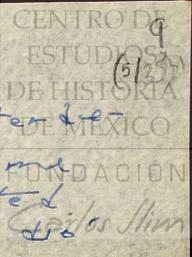 CENTRO DE
9
ESTUDIOS
(5)
DE HISTORIA
DE MEXICO
me
FUNDACIÓN
ted
Carlos Slim
dio